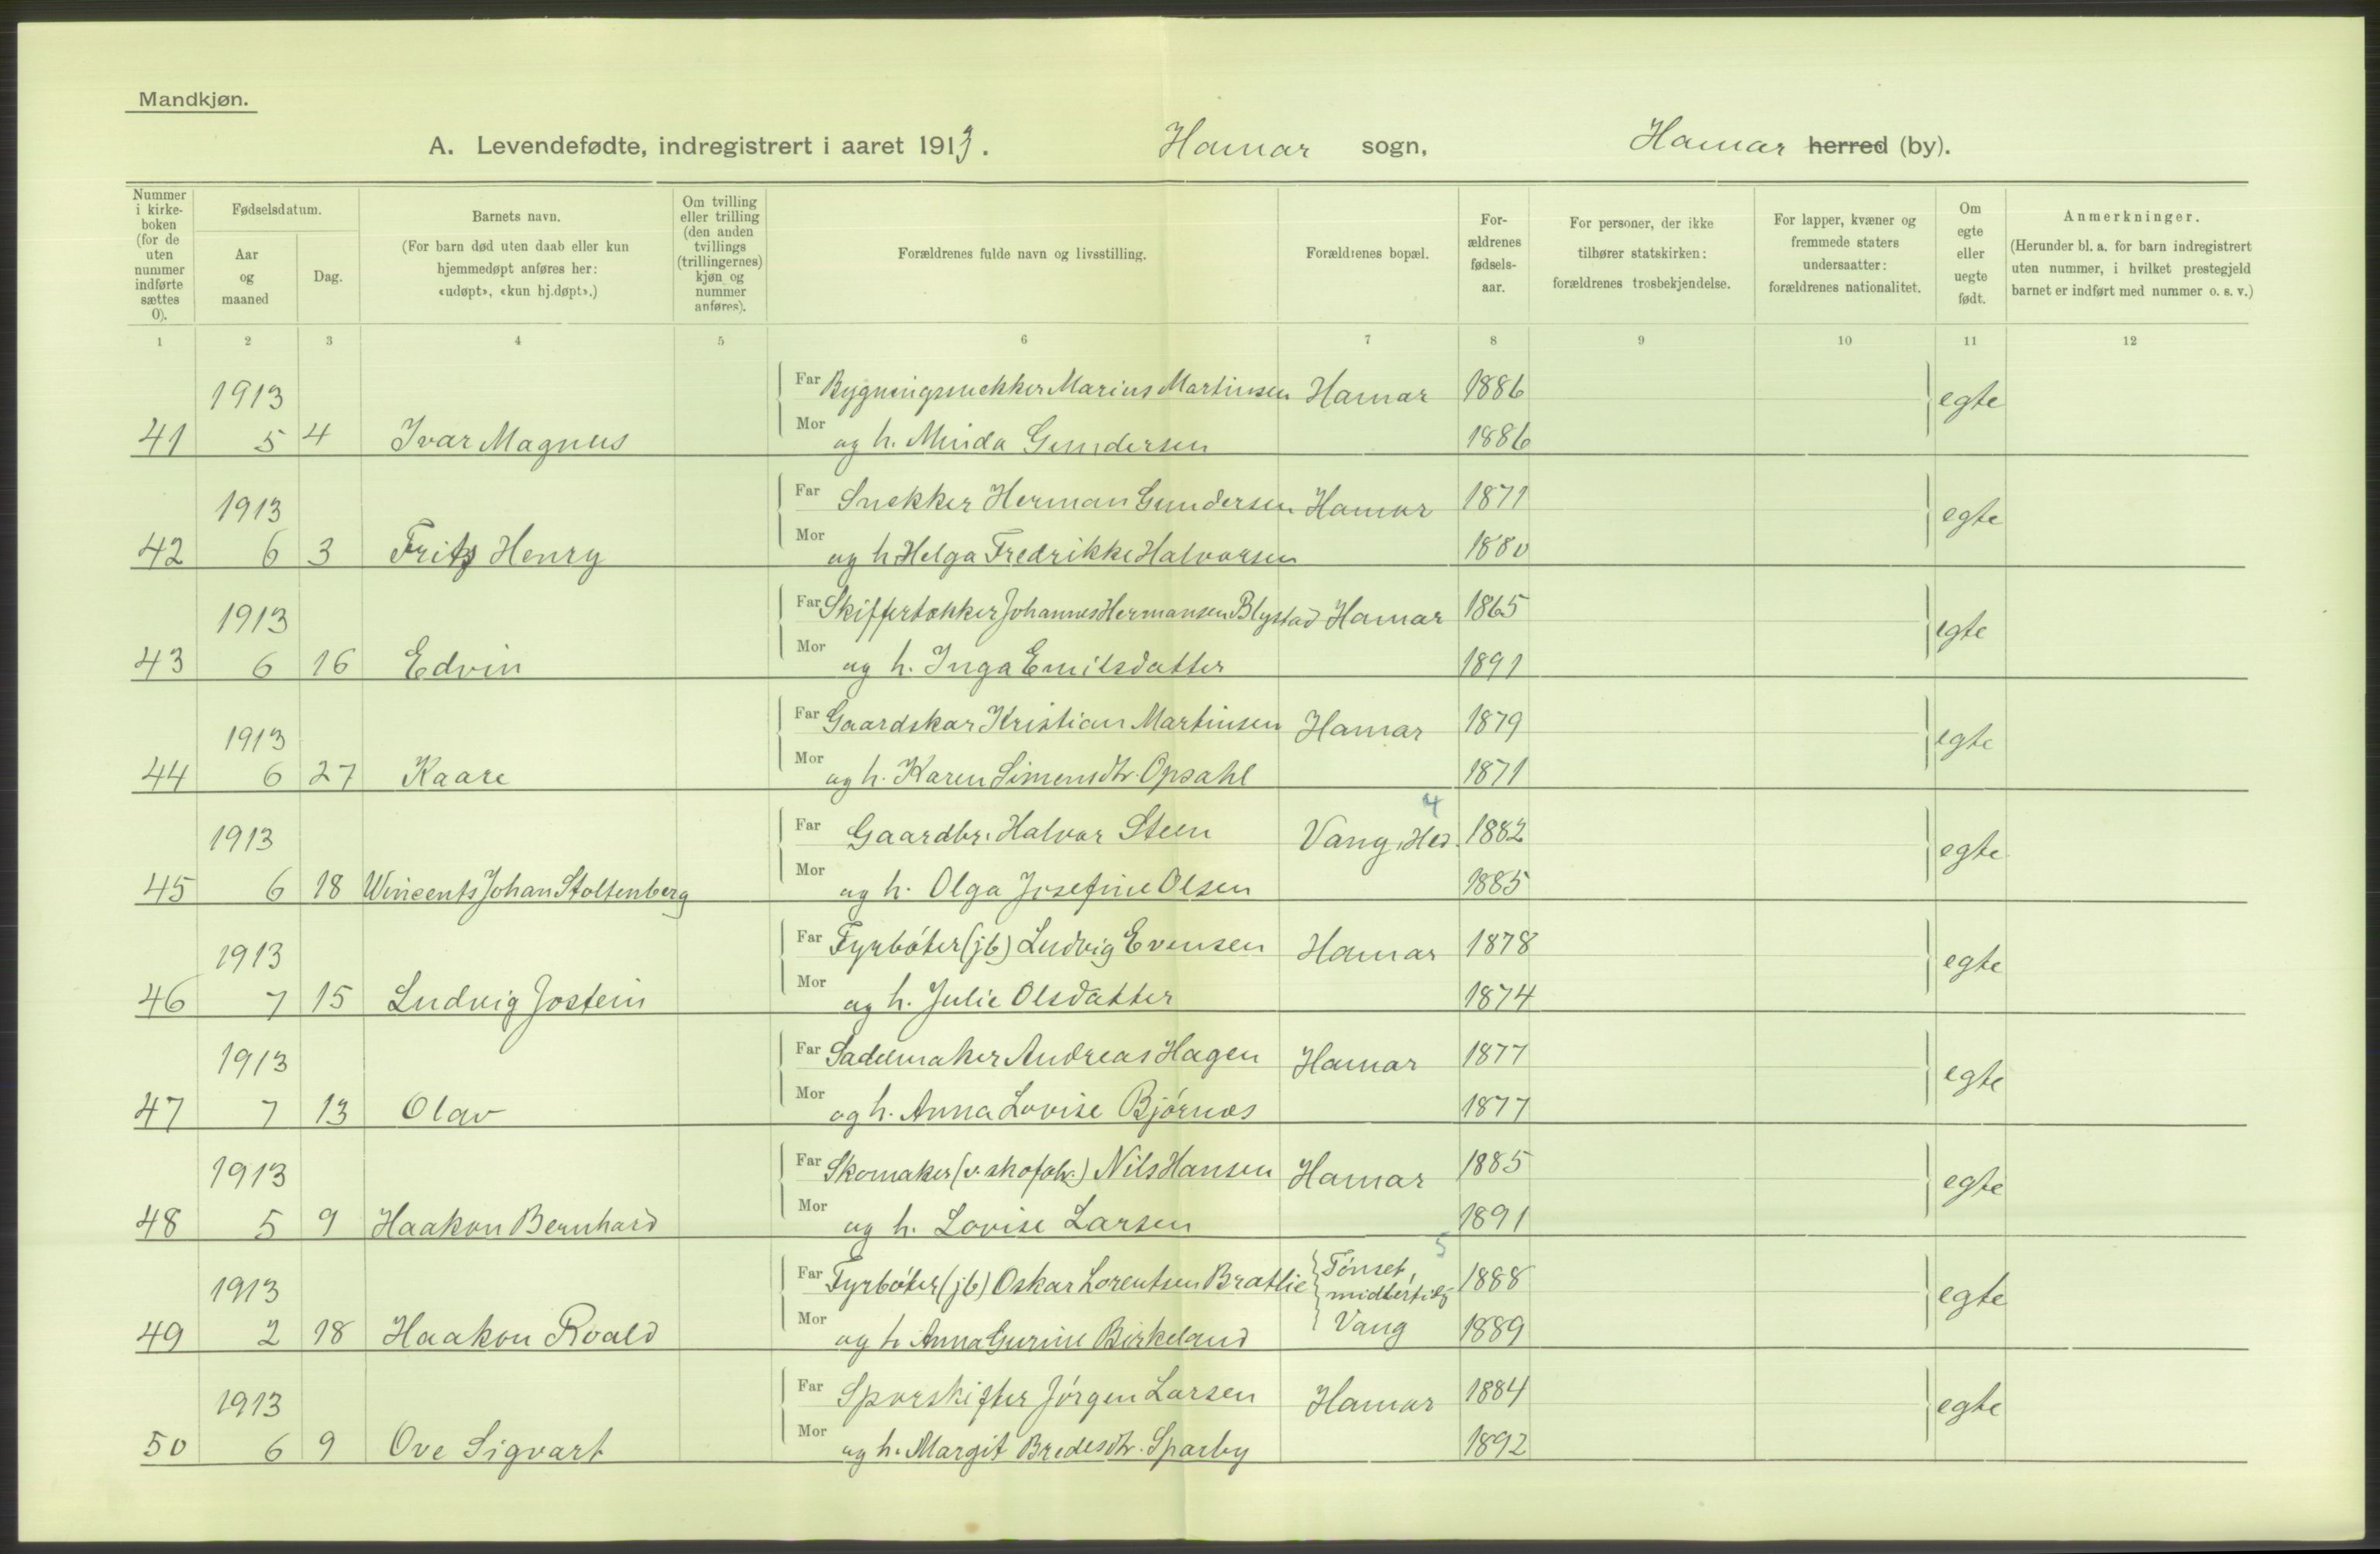 Mandkjøn.
A. Levendefødte, indregistrert i aaret 1913. Hamar sogn, Hamar herred (by).
Nummer i kirke-boken (for de uten nummer indførte sættes 0).
Fødselsdatum.
Aar og maaned
Dag.
Barnets navn.
(For barn død uten daab eller kun hjemmedøpt anføres her: «udøpt», «kun hj.døpt».)
Om tvilling eller trilling (den anden tvillings (trillingernes) kjøn og nummer anføres).
Forældrenes fulde navn og livsstilling.
Forældrenes bopæl.
For-ældrenes fødsels-aar.
For personer, der ikke tilhører statskirken: forældrenes trosbekjendelse.
For lapper, kvæner og fremmede staters undersaatter: forældrenes nationalitet.
Om egte eller uegte født.
Anmerkninger.
(Herunder bl. a. for barn indregistrert uten nummer, i hvilket prestegjeld barnet er indført med nummer o. s. v.)
1 2 3 4 5 6 7 8 9 10 11 12
1913 Far Bygningsnekker Marius Martinsen Hamar 1886 egte
41 5 4 Ivar Magnus Mor og h. Minda Gundersen 1886
1913 Far Snekker Herman Gundersen Hamar 1871 egte
42 6 3 Fritz Henry Mor og h. Helga Fredrikke Halvorsen 1880
1913 Far Skiffertækker Johannes Hermansen Blystad Hamar 1865 egte
43 6 16 Edvin Mor og h. Inga Emilsdatter 1891
1913 Far Gaardskar Kristian Martinsen Hamar 1879 egte
44 6 27 Kaare Mor og h. Karen Simensdtr. Opsahl 1871
4
1913 Far Gaardbr. Halvor Steen Vang, Hed. 1882 egte
45 6 18 Wincents Johan Stoltenberg Mor og h. Olga Josefine Olsen 1885
1913 Far Fyrbøter (jb) Ludvig Evensen Hamar 1878 egte
46 7 15 Ludvig Jostein Mor og h. Julie Olsdatter 1874
1913 Far Sadelmaker Andreas Hagen Hamar 1877 egte
47 7 13 Olav Mor og h. Anna Lovise Bjørnæs 1877
1913 Far Skomaker (v. skofabr.) Nils Hansen Hamar 1885 egte
48 5 9 Haakon Bernhard Mor og h. Lovise Larsen 1891
5
1913 Far Fyrbøter (jb) Oskar Lorentsen Bratlie Tønset, midlertidig 1888 egte
49 2 18 Haakon Roald Mor og h. Anna Gurine Birkeland Vang 1889
1913 Far Sporskifter Jørgen Larsen Hamar 1884 egte
50 6 9 Ove Sigvart Mor og h. Margit Bredesdtr. Sparby 1892